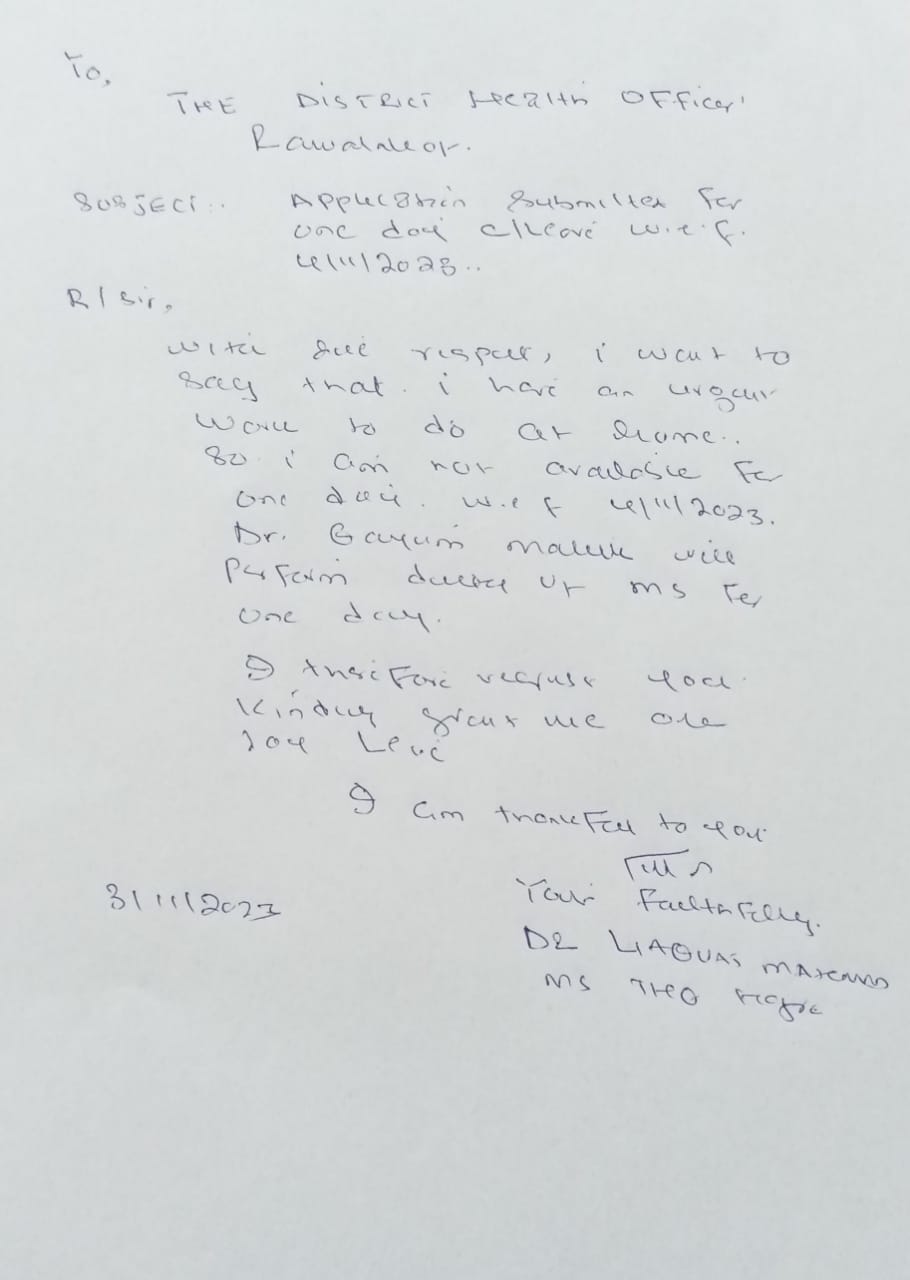 To,
THE DISTRICT Health OFFicer'
Rawalakot.
SUBJECT:. Application Submitted For
one day c/leave w.e.f.
4/11/2023..
R/Sir,
with due respect, i want to
say that. i have an urgent
work to do at home..
So i am not available For
one day. w.e.f 4/11/2023.
Dr. Qayum malik will
PerForm as MS For
one day.
I thereFore request you
Kindly grant me one
day Leave
I am thankFul to you
Your FaithFully.
3/11/2023
DR LIAQUAT
MS THQ